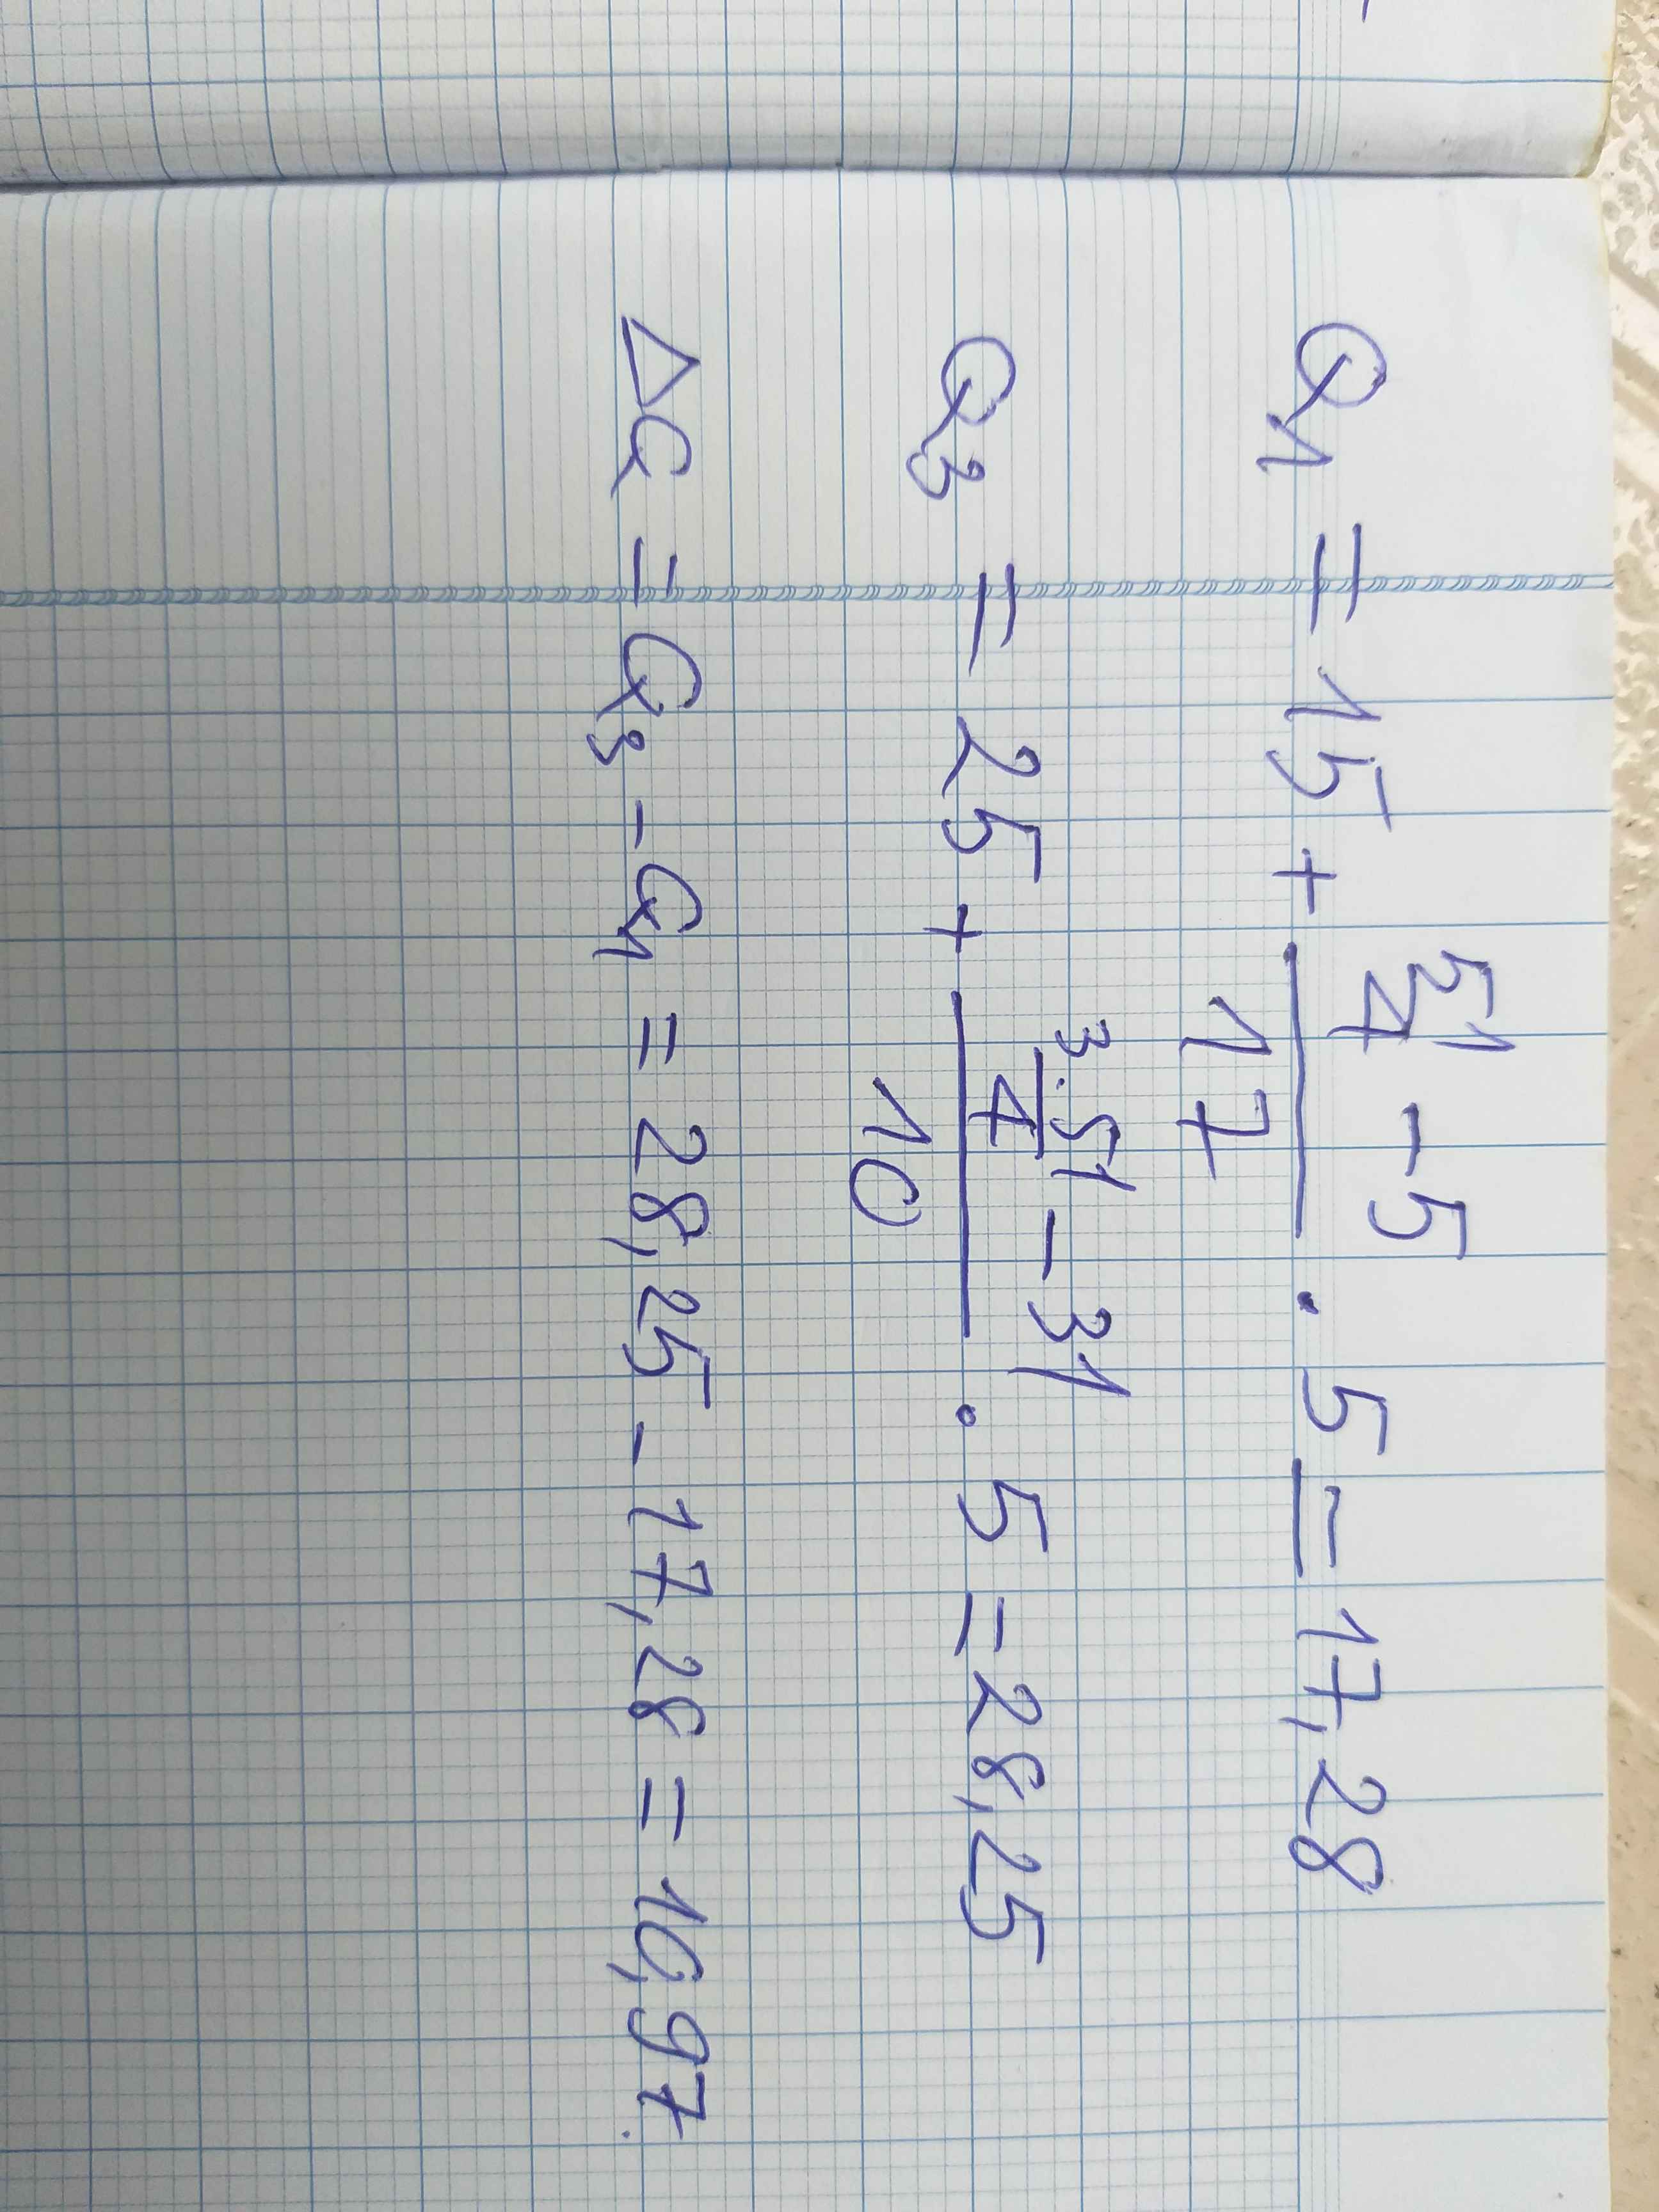 Q1 = 15 + \frac{\frac{51}{4} - 5}{17} . 5 = 17,28
Q3 = 25 + \frac{\frac{3.51}{4} - 31}{10} . 5 = 28,25
ΔQ = Q3 - Q1 = 28,25 - 17,28 = 10,97.